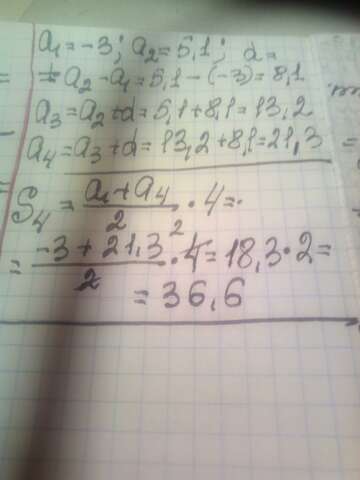 a₁=-3; a₂=5,1; d=
=a₂-a₁=5,1-(-3)=8,1
a₃=a₂+d=5,1+8,1=13,2
a₄=a₃+d=13,2+8,1=21,3
S₄ = (a₁+a₄)/2 · 4 =
= (-3+21,3)/2 · 4 = 18,3·2=
2
= 36,6